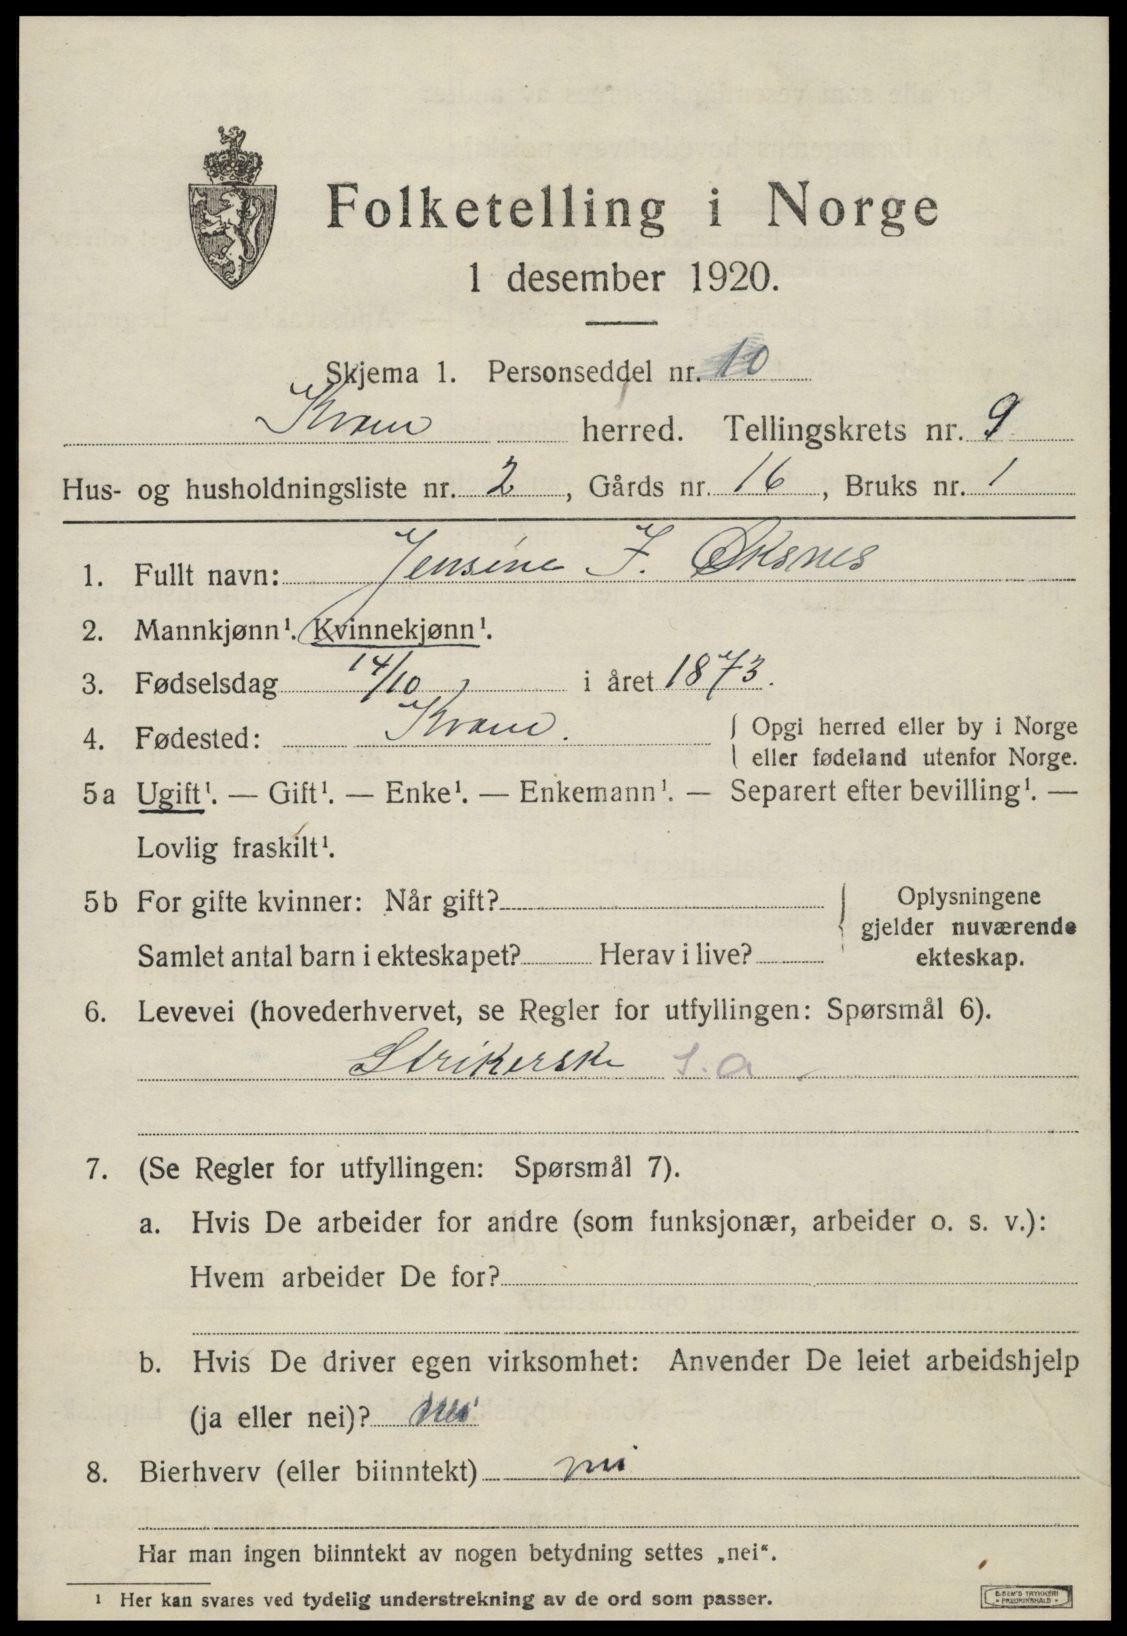 Folketelling i Norge
1 desember 1920.
Skjema 1. Personseddel nr. 10
Kvam herred. Tellingskrets nr. 9
Hus- og husholdningsliste nr. 2, Gårds nr. 16, Bruks nr. 1
1. Fullt navn: Jensine J. Øksnes
2. Mannkjønn¹. Kvinnekjønn¹.
3. Fødselsdag 14/10 i året 1873.
4. Fødested: Kvam. { Opgi herred eller by i Norge
eller fødeland utenfor Norge.
5a Ugift¹. — Gift¹. — Enke¹. — Enkemann¹. — Separert efter bevilling¹. —
Lovlig fraskilt¹.
5b For gifte kvinner: Når gift? { Oplysningene
gjelder nuværende
Samlet antal barn i ekteskapet? Herav i live? ekteskap.
6. Levevei (hovederhvervet, se Regler for utfyllingen: Spørsmål 6).
Strikerske S.a.
7. (Se Regler for utfyllingen: Spørsmål 7).
a. Hvis De arbeider for andre (som funksjonær, arbeider o. s. v.):
Hvem arbeider De for?
b. Hvis De driver egen virksomhet: Anvender De leiet arbeidshjelp
(ja eller nei)? nei
8. Bierhverv (eller biinntekt) nei
Har man ingen biinntekt av nogen betydning settes „nei“.
¹ Her kan svares ved tydelig understrekning av de ord som passer.
E. SEM'S TRYKKERI
FREDRIKSHALD